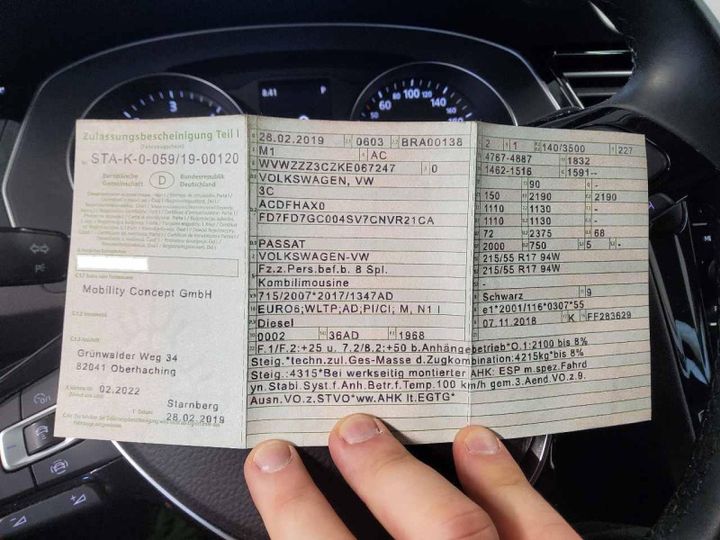 Zulassungsbescheinigung Teil I
(Fahrzeugschein)
STA-K-0-059/19-00120
Europäische Gemeinschaft D Bundesrepublik Deutschland
Mobility Concept GmbH
Grünwalder Weg 34
82041 Oberhaching
02.2022
Starnberg
28.02.2019
28.02.2019 0603 BRA00138
M1 AC
WVWZZZ3CZKE067247 0
VOLKSWAGEN, VW
3C
ACDFHAX0
FD7FD7GC004SV7CNVR21CA
PASSAT
VOLKSWAGEN-VW
Fz.z.Pers.bef.b. 8 Spl.
Kombilimousine
715/2007*2017/1347AD
EURO6;WLTP;AD;PI/CI; M, N1 I
Diesel
0002 36AD 1968
2 1 140/3500 227
4767-4887 1832
1462-1516 1591--
90 -
150 2190 2190
1110 1130 -
1110 1130 -
72 2375 68
2000 750 5 -
215/55 R17 94W
215/55 R17 94W
-
Schwarz 9
e1*2001/116*0307*55
07.11.2018 K FF283629
F.1/F.2:+25 u. 7.2/8.2:+50 b.Anhängebetrieb*O.1:2100 bis 8%
Steig.*techn.zul.Ges-Masse d.Zugkombination:4215kg*bis 8%
Steig.:4315*Bei werkseitig montierter AHK: ESP m.spez.Fahrd
yn.Stabi.Syst.f.Anh.Betr.f.Temp.100 km/h gem.3.Aend.VO.z.9.
Ausn.VO.z.STVO*ww.AHK lt.EGTG*
8:41 P
3
80 100 120
60 140
50 160